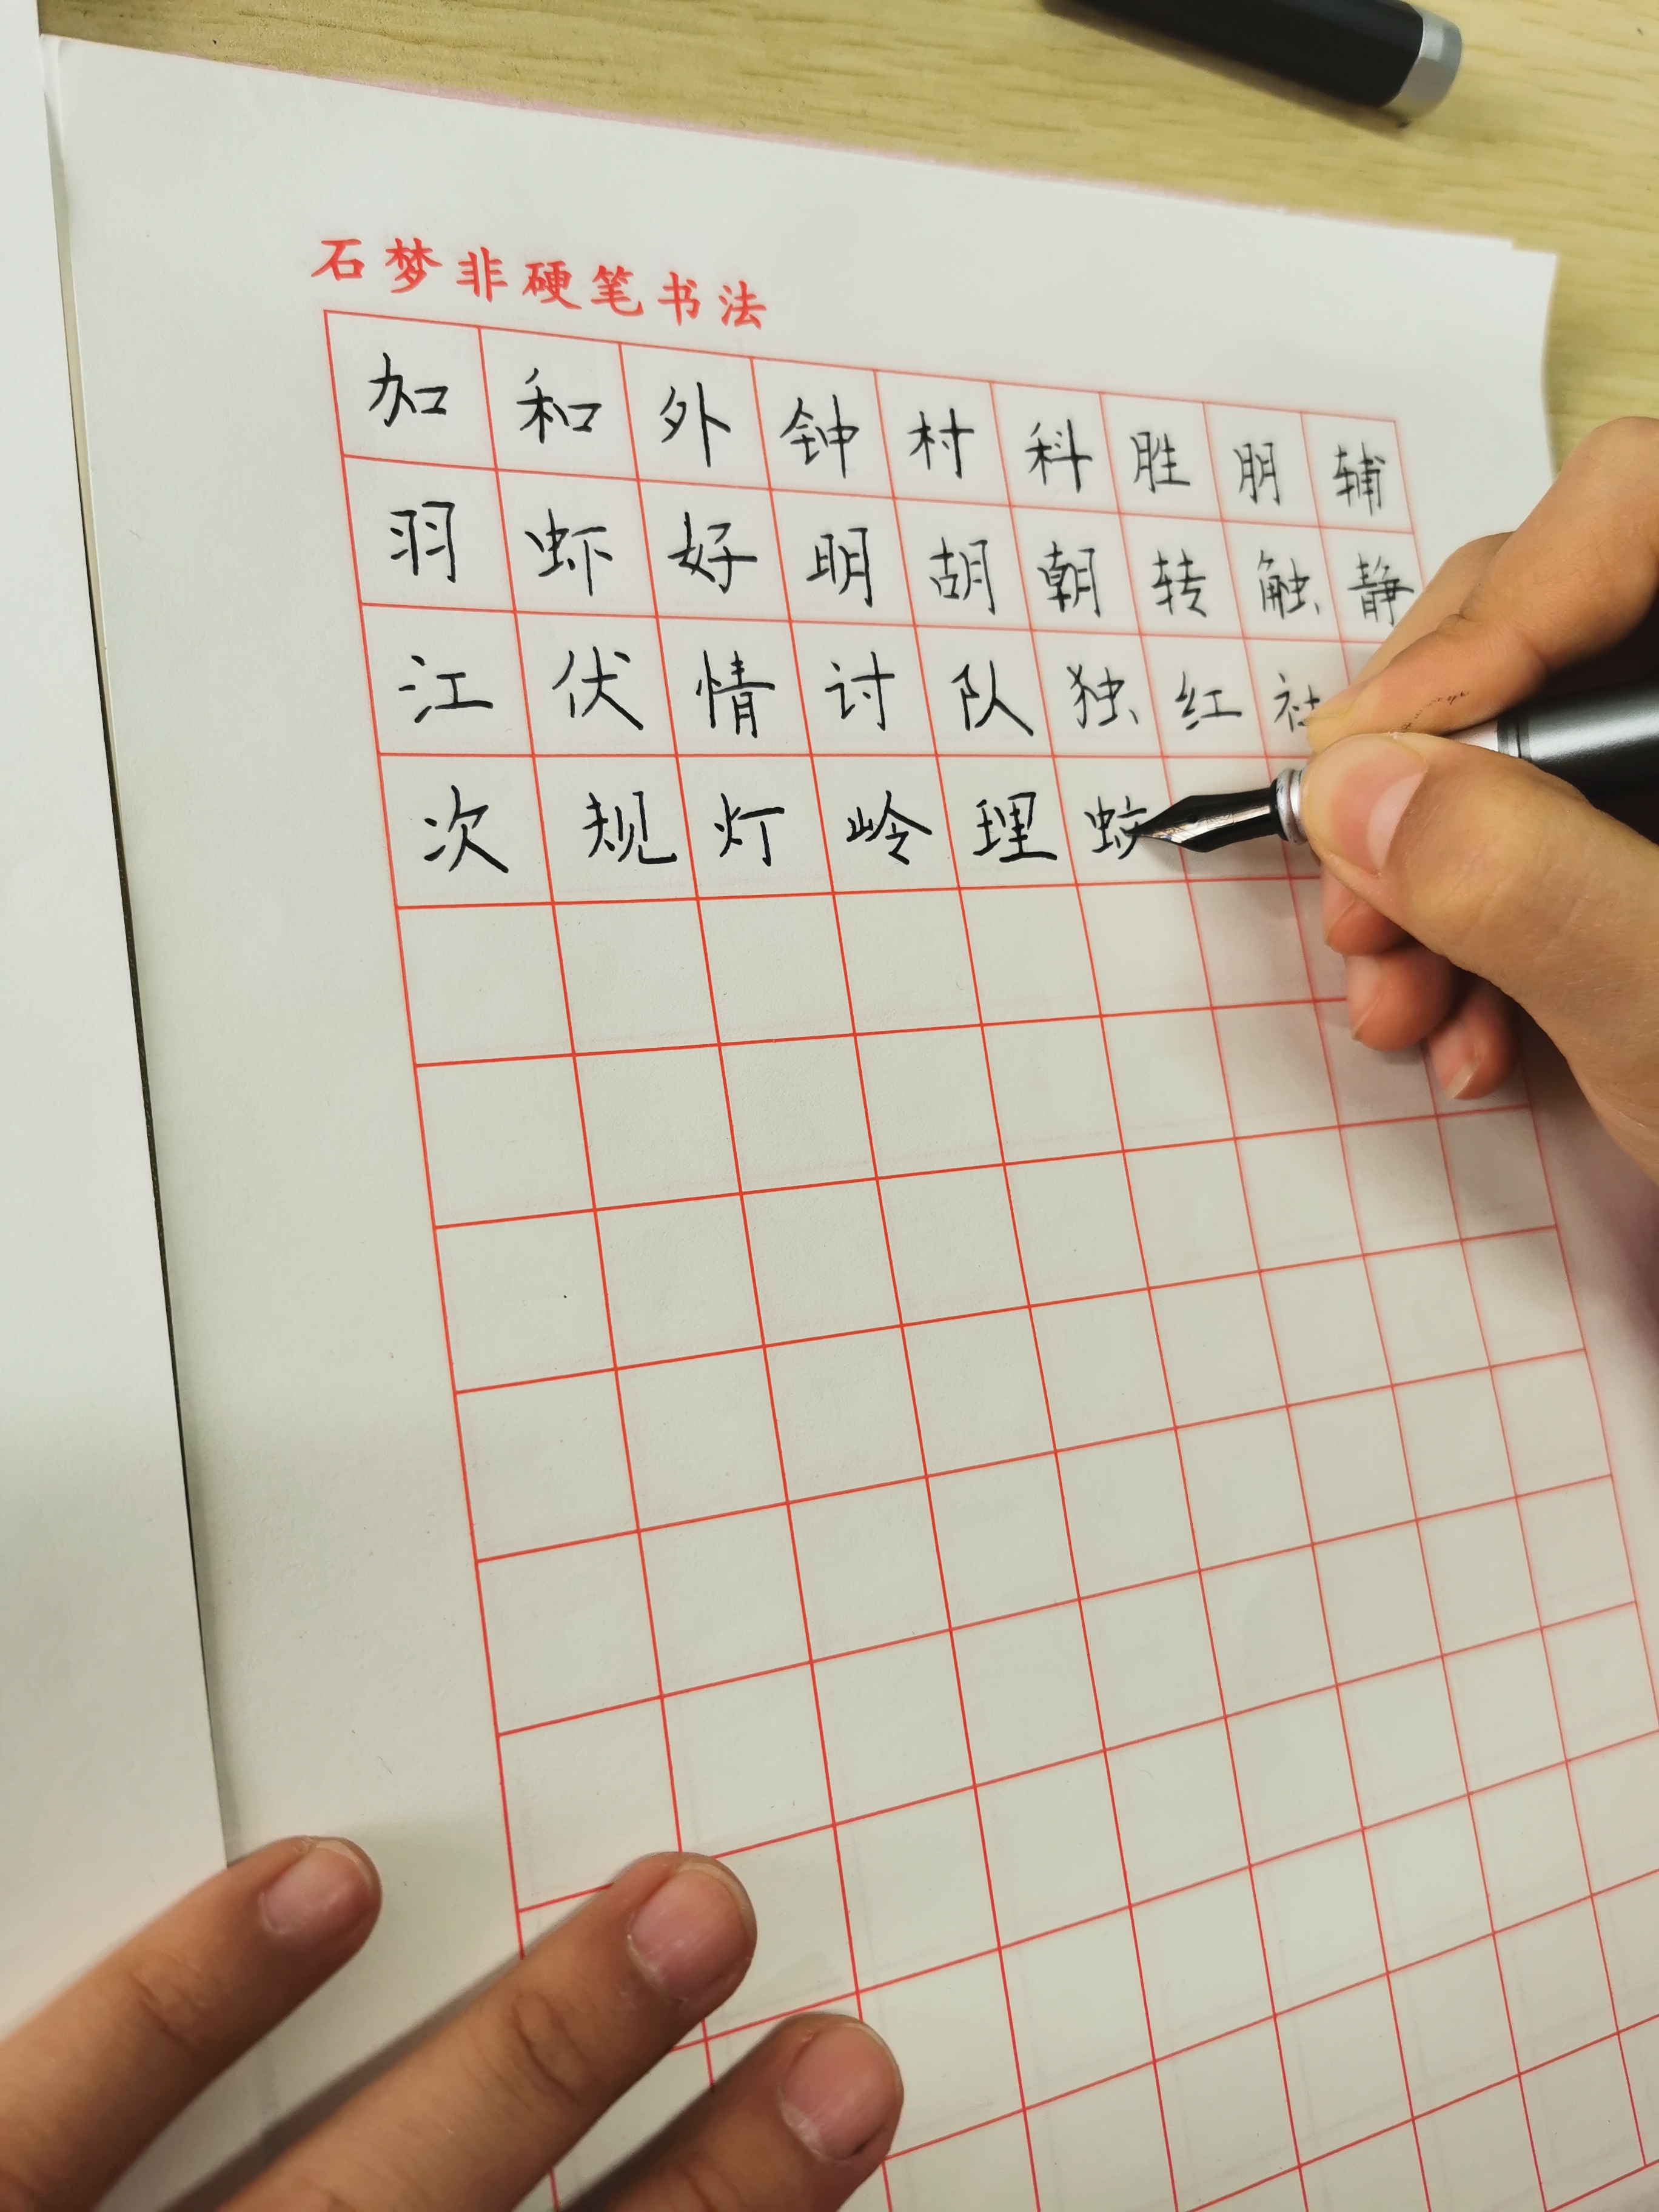 石梦非硬笔书法
加和外钟村科胜朋辅
羽虾好明胡朝转触静
江伏情讨队独红社
次规灯岭理